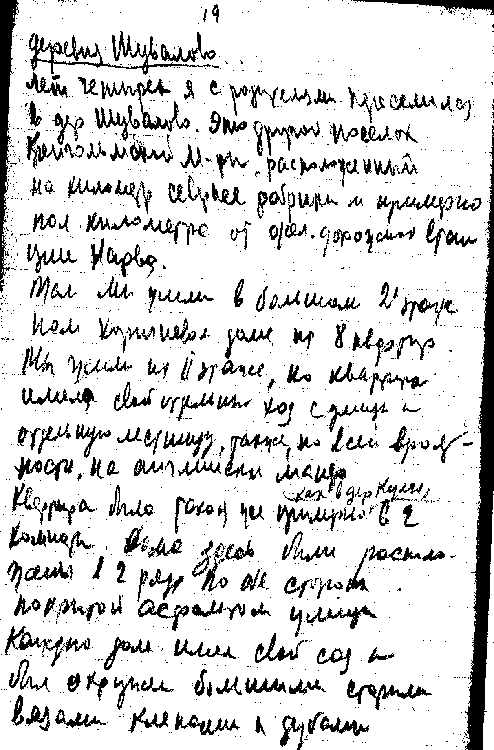 19
деревня Шувалово
Лет четырех я с родителями переселился
в дер Шувалово. Это другой поселок
Кренгольмской м-ры, расположенный
на километр севернее фабрики и примерно
пол километра от жел. дорожной стан
ции Нарва.
Там мы жили в большом 2х этаж
ном кирпичном доме на 8 квартир.
Мы жили на II этаже, но квартира
имела свой отдельный ход с улицы и
отдельную лестницу, также, по всей вероят-
ности, на английский манер
как в дер Кулга,
Квартира была такой же примерно в 2
комнаты. Дома здесь были располо-
жены в 2 ряда по обе стороны
покрытой асфальтом улицы
Каждый дом имел свой сад и
был окружен большими старыми
вязами кленами и дубами